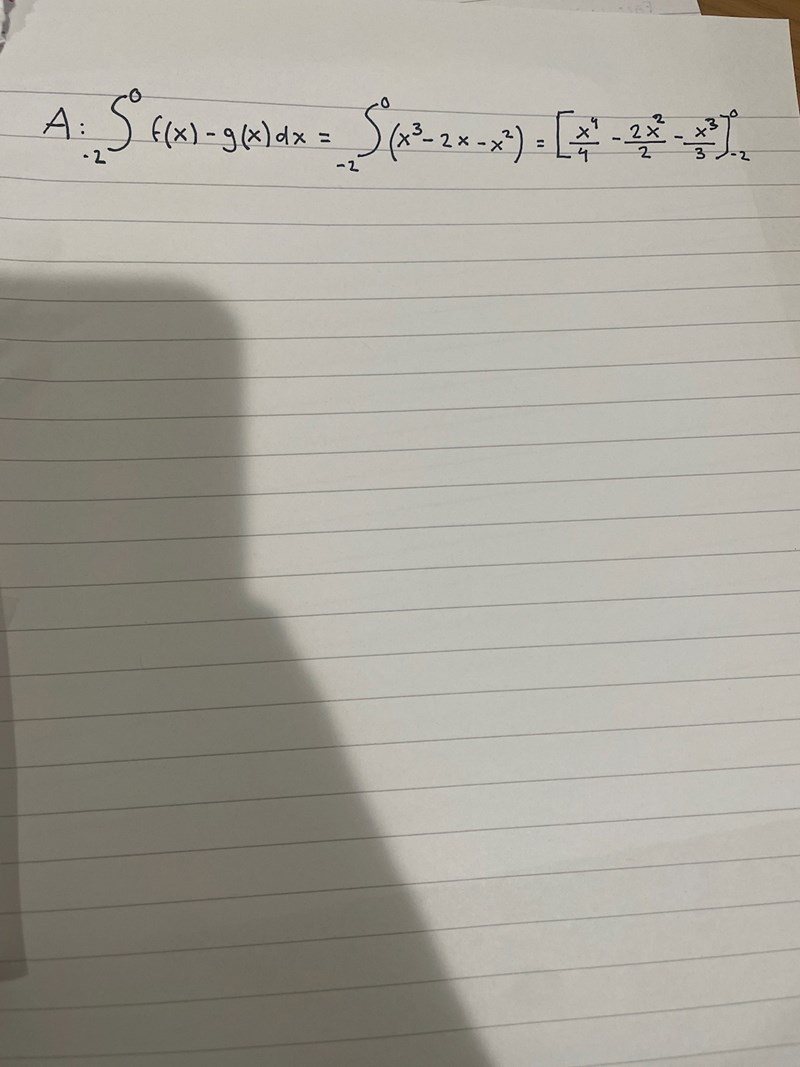 A: ∫₋₂⁰ f(x) - g(x) dx = ∫₋₂⁰ (x³ - 2x - x²) = [x⁴/4 - 2x²/2 - x³/3]₋₂⁰